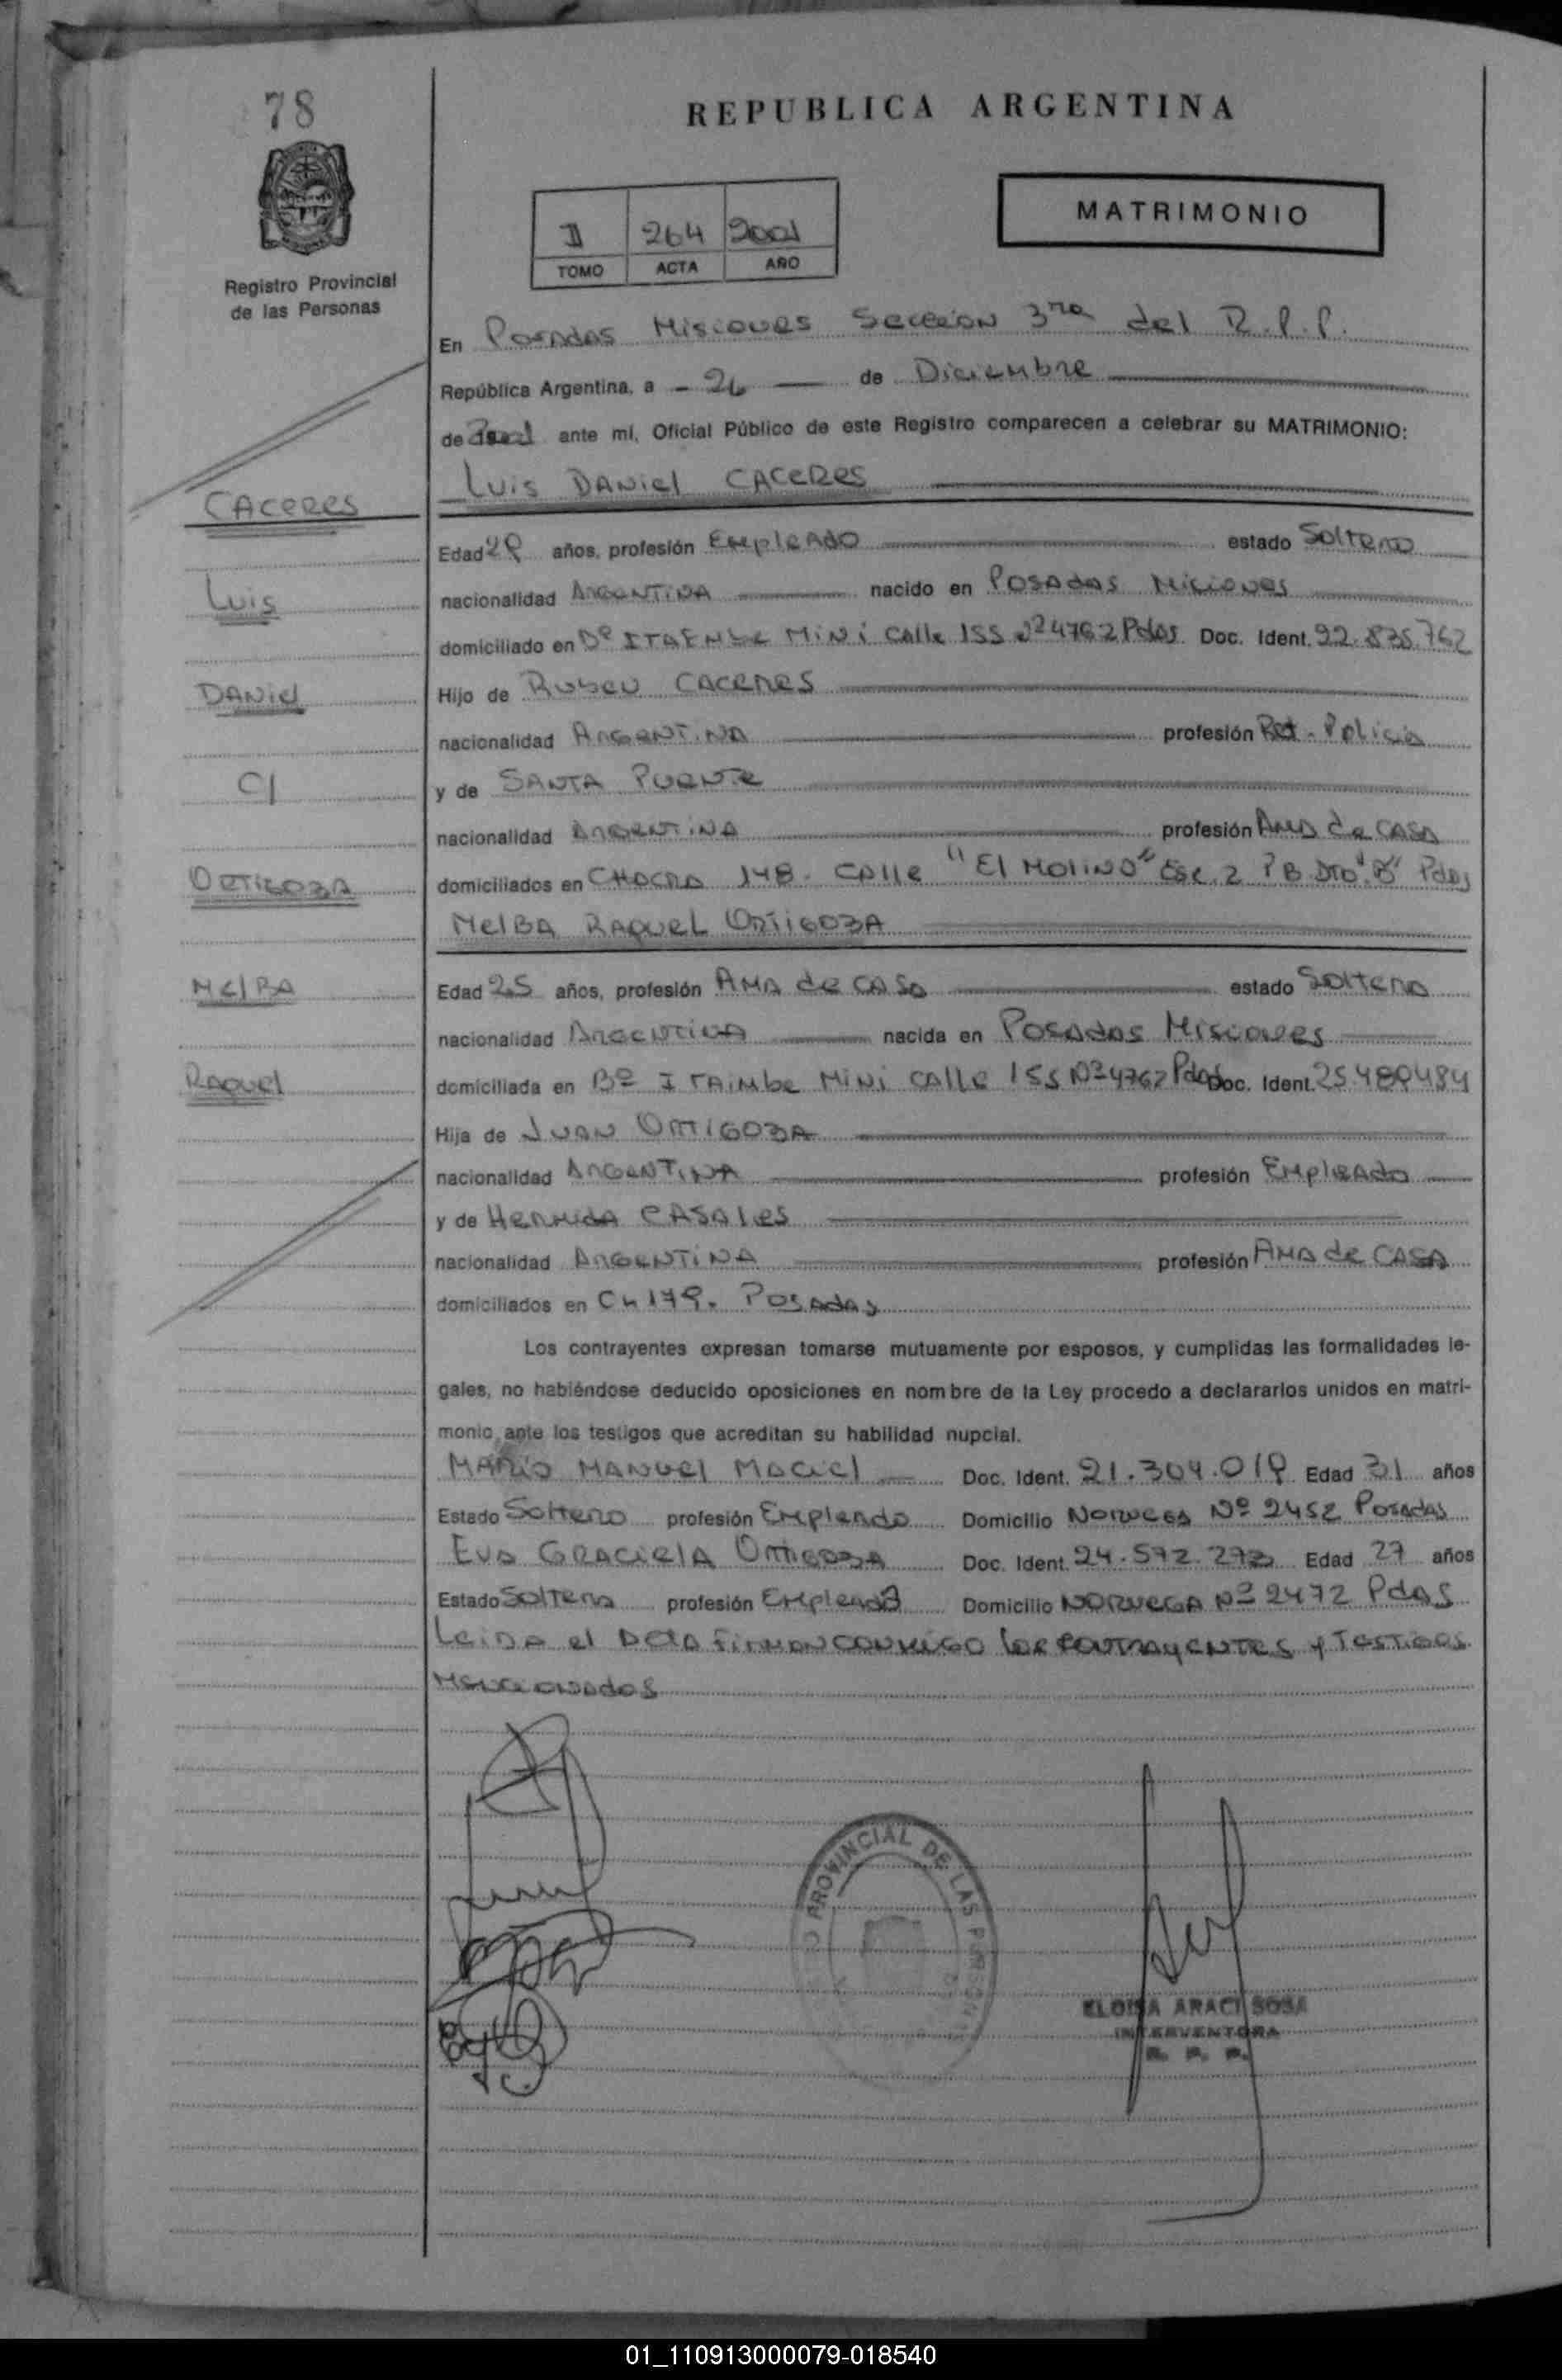 78
REPUBLICA ARGENTINA
MATRIMONIO
II 264 2001
TOMO ACTA AÑO
Registro Provincial
de las Personas
En Posadas Misiones Sección 3ra del R.P.P.
República Argentina, a - 26 — de Diciembre
de ante mí, Oficial Público de este Registro comparecen a celebrar su MATRIMONIO:
Luis DANiel CACERES
CACERES
Edad años, profesión EMpleADO estado SOLTERO
nacionalidad ARGENTINA nacido en POSADAS Misiones
Luis
domiciliado en Bº ITAEMBE MiNi CAlle 155 Nº 4762 Pdas Doc. Ident. 92.835.762
DANiel
Hijo de RUBEN CACERES
nacionalidad ARGENTINA profesión Ret. Policia
C/
y de SANTA PUENTE
nacionalidad ARGENTINA profesión AMA de CASA
ORTIGOZA
domiciliados en CHACRA 148. CAlle "El MOLINO" Esc. 2 PB DTO "B" Pdas
MelBA RAQUEL ORTIGOZA
MelBA
Edad 25 años, profesión AMA de CASA estado SOLTERA
nacionalidad ARGENTINA nacida en POSADAS Misiones
RAQuel
domiciliada en Bº ITAIMbe MiNi CAlle 155 Nº 4762 Pdas Doc. Ident. 25.480484
Hija de JUAN ORTIGOZA
nacionalidad ARGENTINA profesión EMpleADO
y de HERMIDA CASALES
nacionalidad ARGENTINA profesión AMA de CASA
domiciliados en Ch 179. POSADAS
Los contrayentes expresan tomarse mutuamente por esposos, y cumplidas las formalidades le-
gales, no habiéndose deducido oposiciones en nombre de la Ley procedo a declararlos unidos en matri-
monio ante los testigos que acreditan su habilidad nupcial.
MARIO MANUEL MACIEL Doc. Ident. 21.304.019 Edad 31 años
Estado SOLTERO profesión EMpleADO Domicilio NORUEGA Nº 2452 POSADAS
EVA GRACIELA ORTIGOZA Doc. Ident. 24.572.273 Edad 27 años
Estado SOLTERA profesión EMpleADA Domicilio NORUEGA Nº 2472 PdAS
LeiDA el ACTA FiRMAN CONMIGO los CONTRAYENTES y TESTIGOS
MENCIONADOS
PROVINCIAL DE LAS PERSONAS
ELOISA ARACI SOSA
INTERVENTORA
R. P. P.
01_110913000079-018540